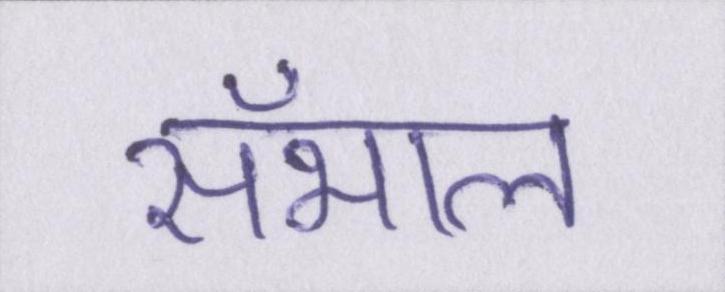 सँभाल